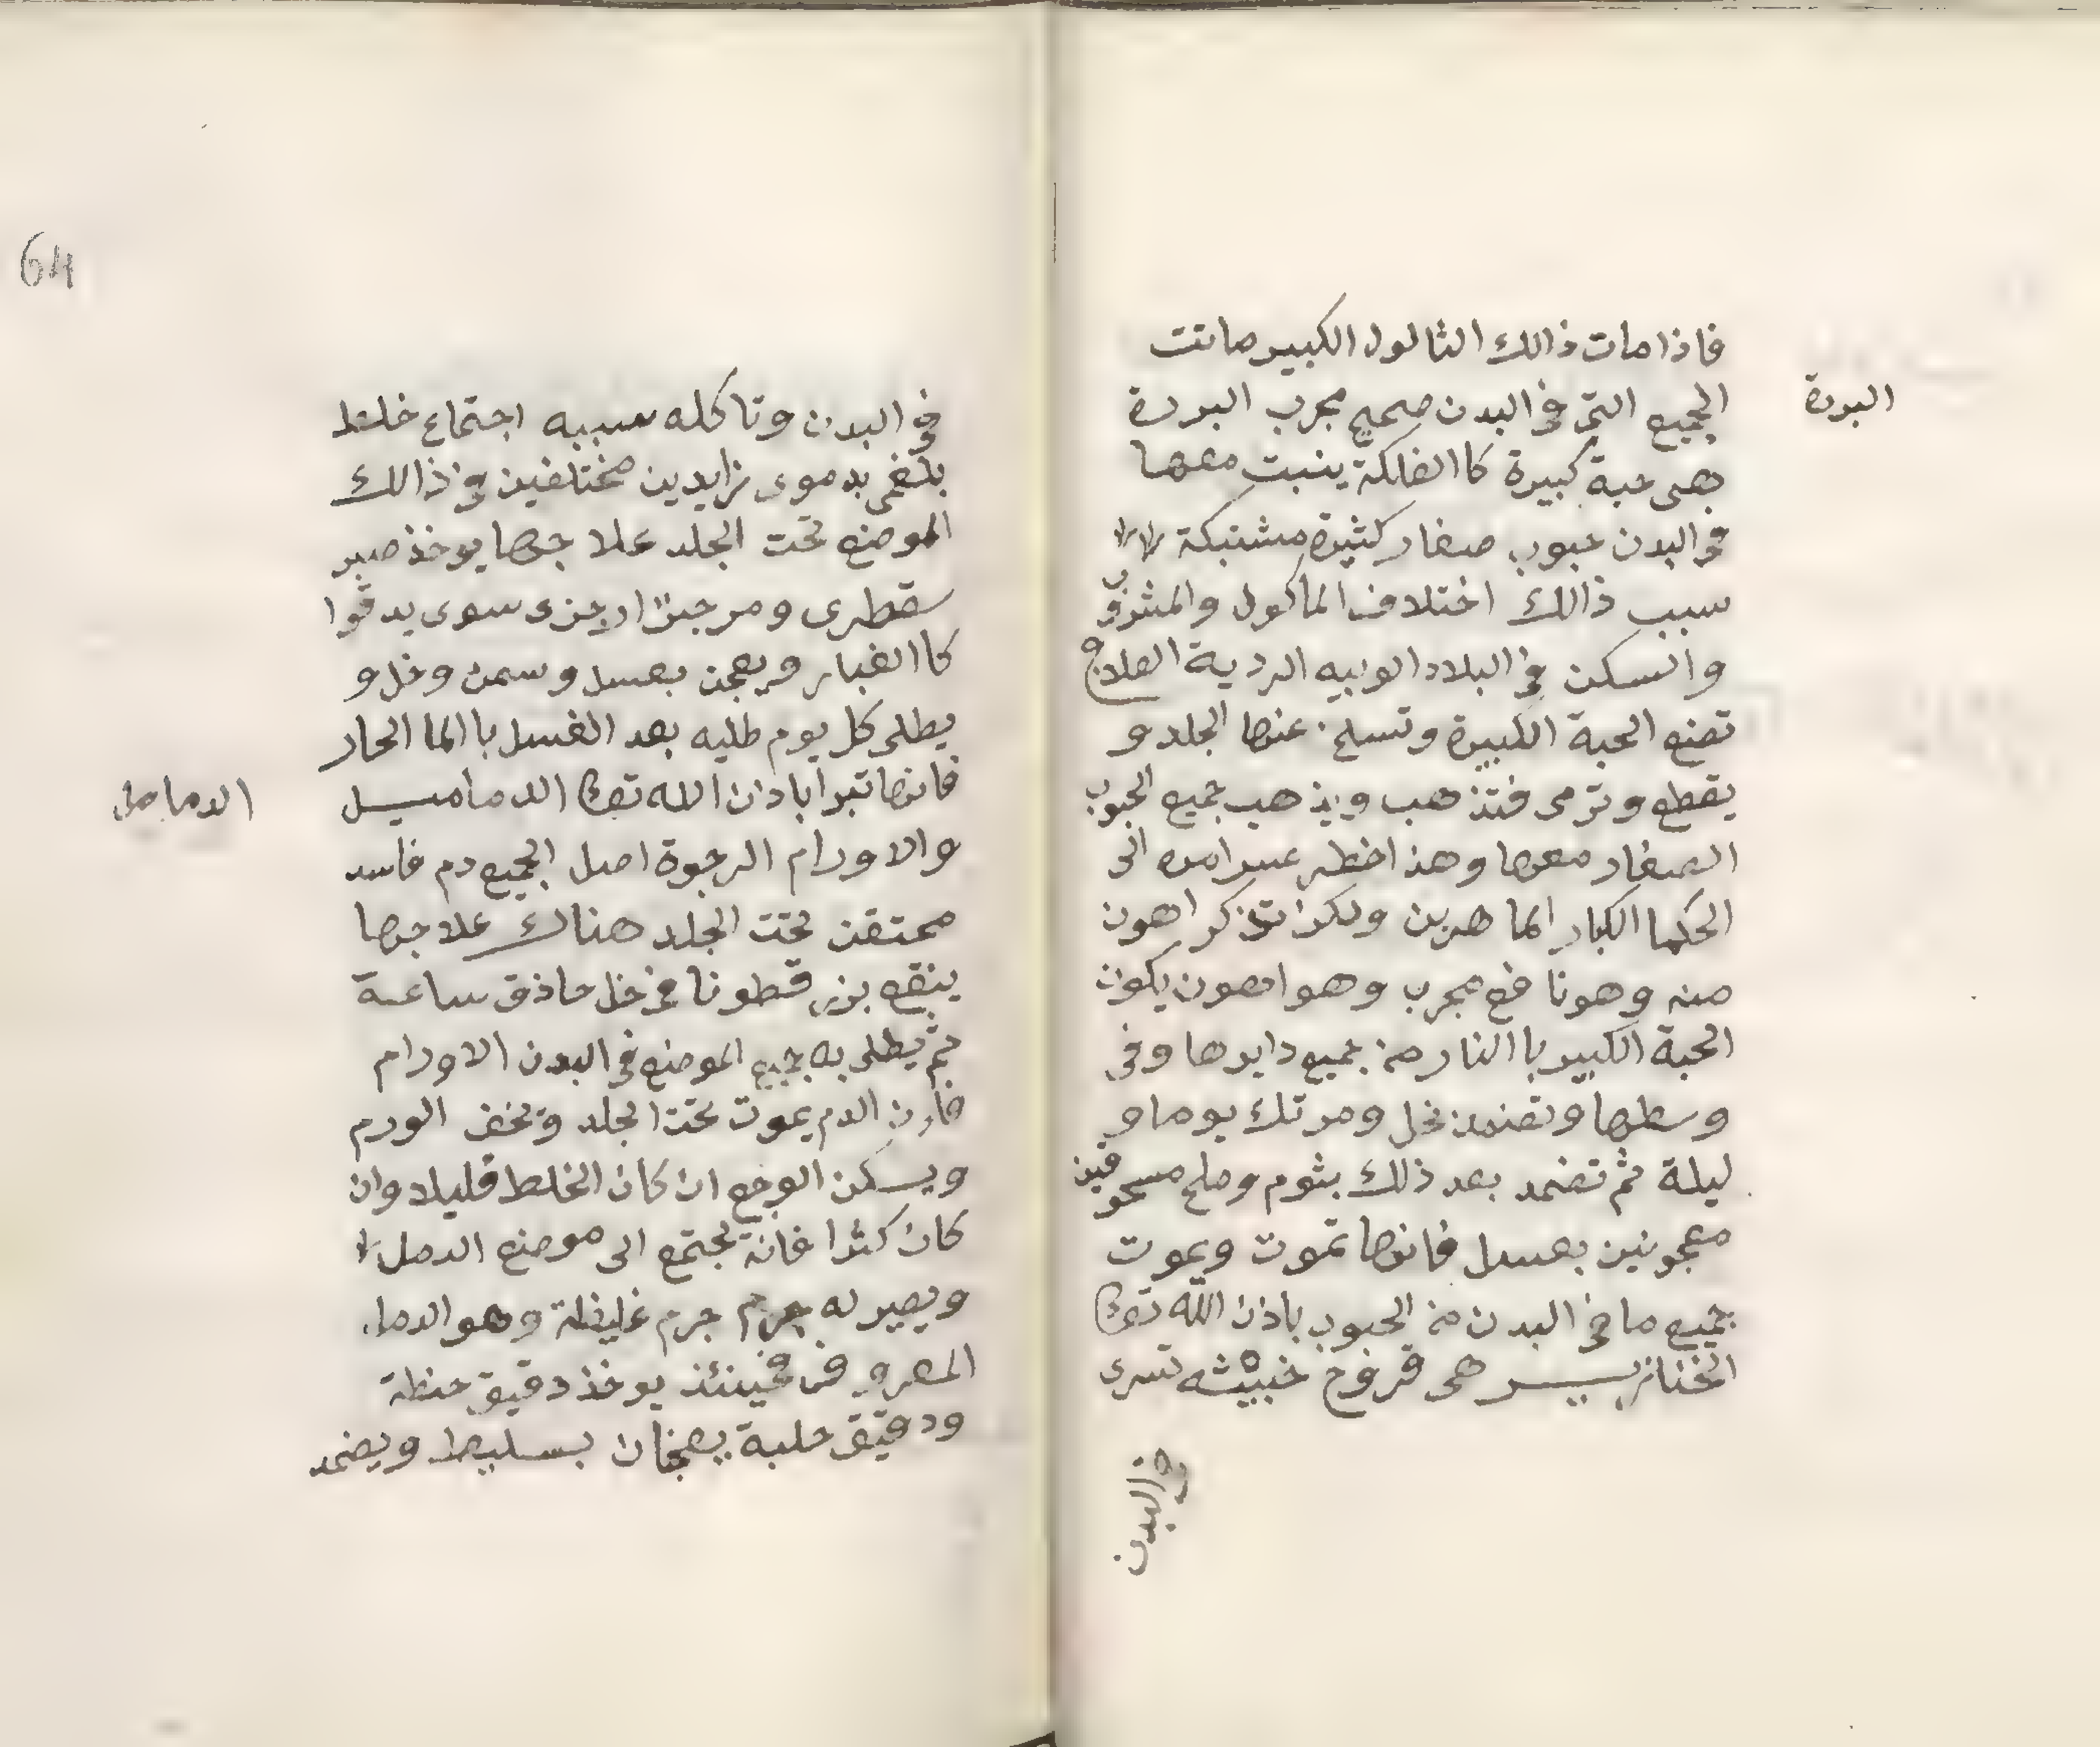 فاذا مات ذالك الثالول الكبير ماتت
الجميع التى فى البدن صحيح مجرب البردة
البردة
هى حبة كبيرة كاالفلكة ينبت معها
فى البدن حبوب صغار كثيرة مشتبكة
سبب ذالك اختلاف الماكول والمشروب
والسكن فى البلاد الوبيه الردية العلاج
تضع الحبة الكبيرة وتسلخ عنها الجلد و
يقطع وترمى فتذهب ويذهب جميع الحبوب
الصغار معها وهذا خطر عسر امره الى
الحكما الكبار الماهرين ولكن تذكر اهون
منه وهو نافع مجرب وهو اهون يكون
الحبة الكبير باالنار من جميع دايرها وفى
وسطها وتضمد بخل ومرتك يوما و
ليلة ثم تضمد بعد ذلك بثوم وملح مسحوقين
معجونين بعسل فانها تموت ويموت
جميع ما فى البدن من الحبوب باذن الله تعالى
الخنازيــر هى قروح خبيثه تسرى
فى البدن
64
فى البدن وتاكله سببه اجتماع خلط
بلغمى بدموى زايدين مختلفين فى ذالك
الموضع تحت الجلد علاجها يوخذ صبر
سقطرى ومر جزا جزى سوى يدقوا
كاالغبار ويعجن بعسل وسمن وخل و
يطلى كل يوم طليه بعد الغسل باالما الحار
فانها تبرا باذن الله تعالى الدماميــل
الدمامل
والاورام الرخوة اصل الجميع دم فاسد
محتقن تحت الجلد هناك علاجها
ينقع بزر قطونا فى خل حاذق ساعة
ثم يطلى به جميع الموضع فى البدن الاورام
فان الدم يموت تحت الجلد ويخف الورم
ويسكن الوجع ان كان الخلط قليلا وان
كان كثرا فانه يجتمع الى موضع الدمل
ويصير له جرم غليظة وهو الدمل
المعروف فحينئذ يوخذ دقيق حنظة
ودقيق حلبة يعجنان بسليط ويضمد